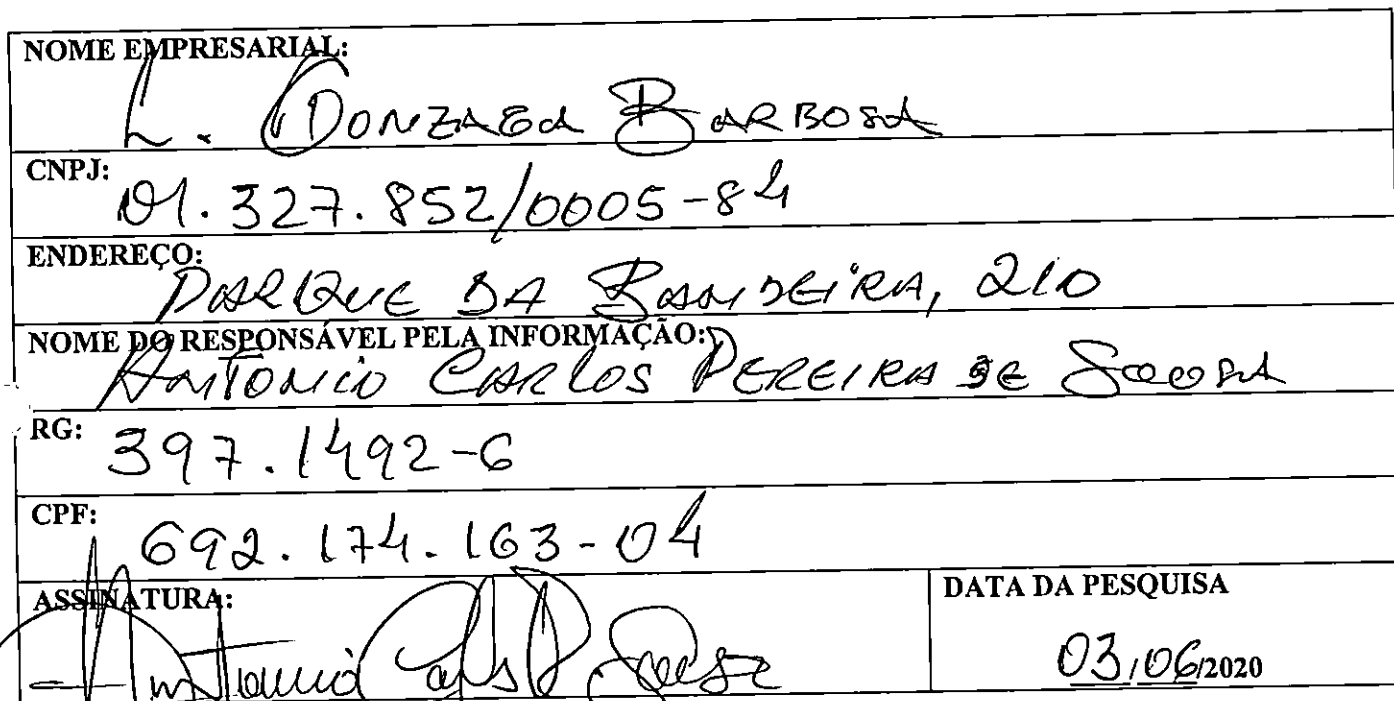 NOME EMPRESARIAL:
L. GONZAGA BARBOSA
CNPJ: 01.327.852/0005-84
ENDEREÇO:
PARQUE DA BANDEIRA, 210
NOME DO RESPONSÁVEL PELA INFORMAÇÃO:
ANTONIO CARLOS PEREIRA DE SOUSA
RG: 397.1492-6
CPF: 692.174.163-04
ASSINATURA: DATA DA PESQUISA
Antonio Carlos P. Sousa 03/06/2020